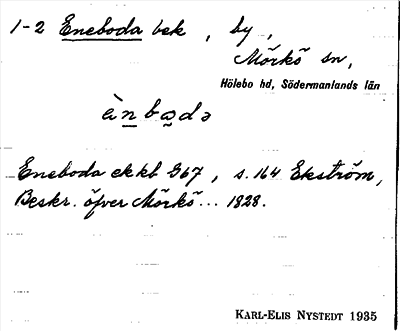 1-2 Eneboda bek, by,
Mörkö sn,
Hölebo hd, Södermanlands län
ènbədə
Eneboda ekbl G67, s. 164 Ekström,
Beskr. öfver Mörkö... 1828.
KARL-ELIS NYSTEDT 1935